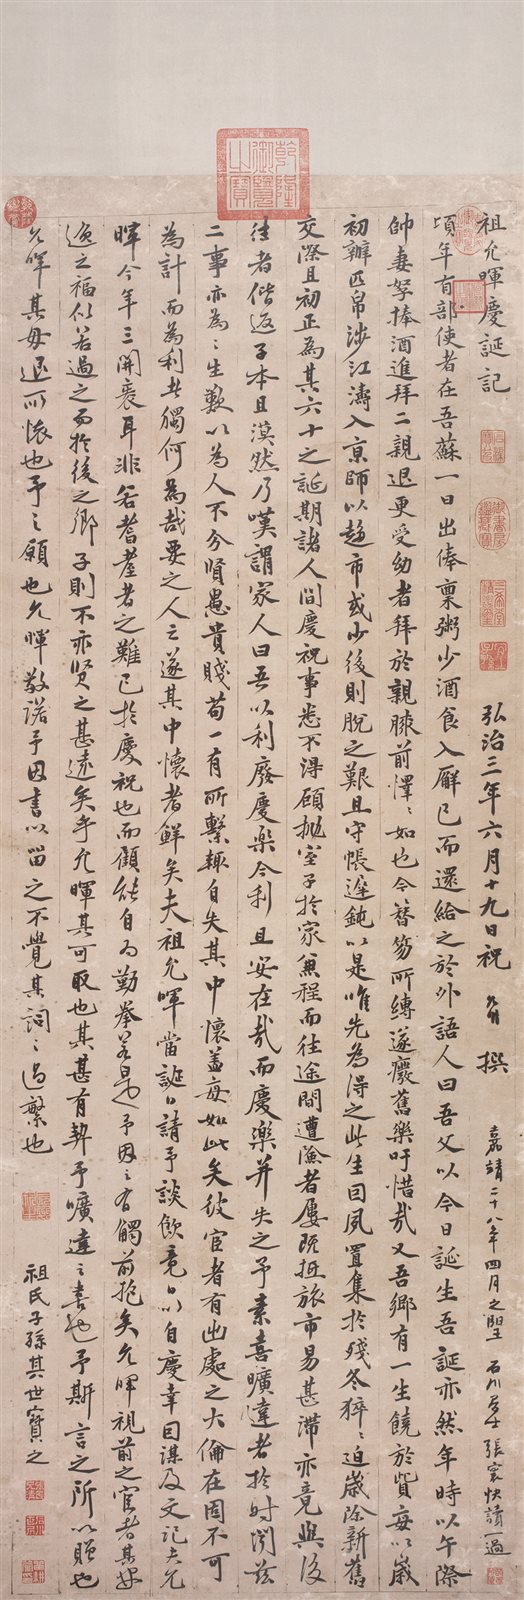 祖允暉慶誕記
弘治三年六月十九日祝允明撰
嘉靖二十八年四月之望石川居士張寰快讀一過
頃年有部使者在吾蘇一日出俸稟粥少酒食入廨已而還給之於外語人曰吾父以今日誕生吾誕亦然年時以午際
帥妻孥捧酒進拜二親退更受幼者拜於親膝前懌〻如也今簪笏所縛遂癈舊樂吁惜哉又吾鄉有一生饒於貲每以歲
初辦匹帛涉江濤入京師以趍市或少後則脫之艱且守帳遲鈍以是唯先為得之此生曰夙置集於殘冬猝〻迫歲除新舊
交際且初正為其六十之誕期諸人間慶祝事悉不得顧拋室子於家兼程而往途間遭險者屢既抵旅市易甚滯亦竟與後
往者偕返子本且漠然乃嘆謂家人曰吾以利廢慶樂今利且安在哉而慶樂并失之予素喜曠達者於時閔茲
二事亦為〻生歎以為人不分賢愚貴賤苟一有所繫輒自失其中懷蓋每如此矣彼宦者有出處之大倫在固不可
為計而為利者獨何為哉要之人之遂其中懷者鮮矣夫祖允暉當誕日請予談飲竟日以自慶幸因謀及文記夫允
暉今年三開袠耳非若耆耋者之難已於慶祝也而顧能自為勤拳若是予因之有觸前抱矣允暉視前之宦者其安
逸之福似若過之而於後之鄉子則不亦賢之甚遠矣乎允暉其可取也其甚有契予曠達之書也予斯言之所以贈也
允暉其毋退所懷也予之願也允暉敬諾予因書以留之不覺其詞〻過繁也
祖氏子孫其世寶之
乾隆御覽之寶